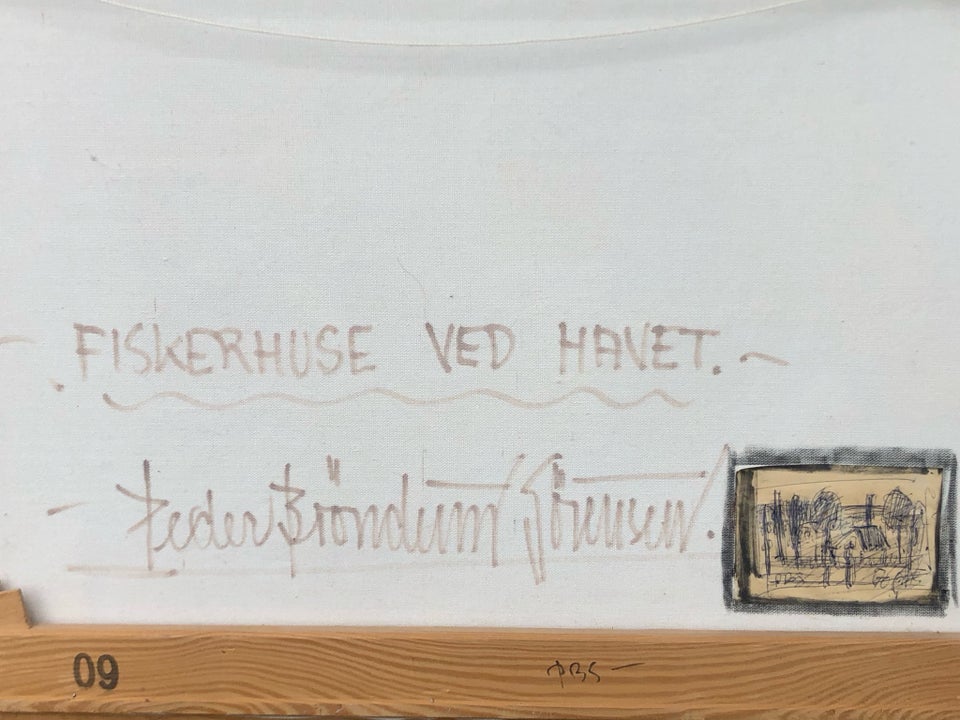 - FISKERHUSE VED HAVET. ~
- Peder Bröndum Sörensen.
09
PBS -